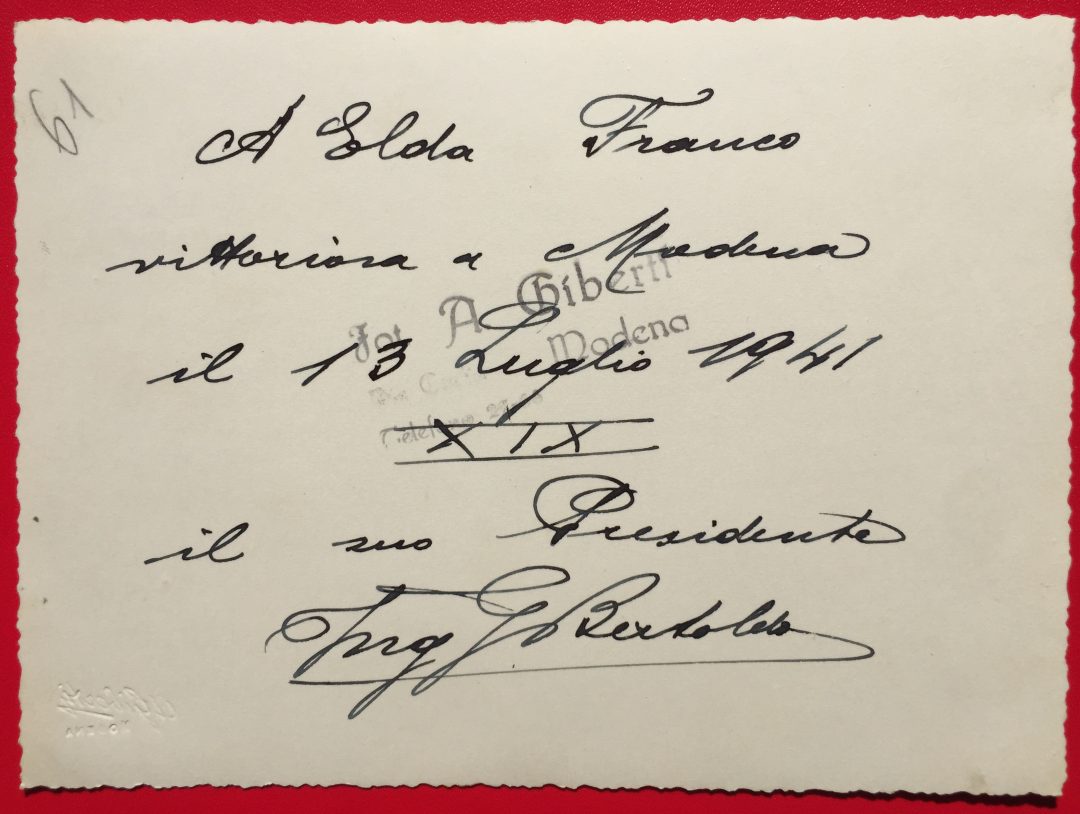 19
A Elda Franco
vittoriosa a Modena
il 13 Luglio 1941
XIX
il suo Presidente
Ing G Bertoldo
Fot. A. Giberti
Modena
Telefono
A Giberti
MODENA